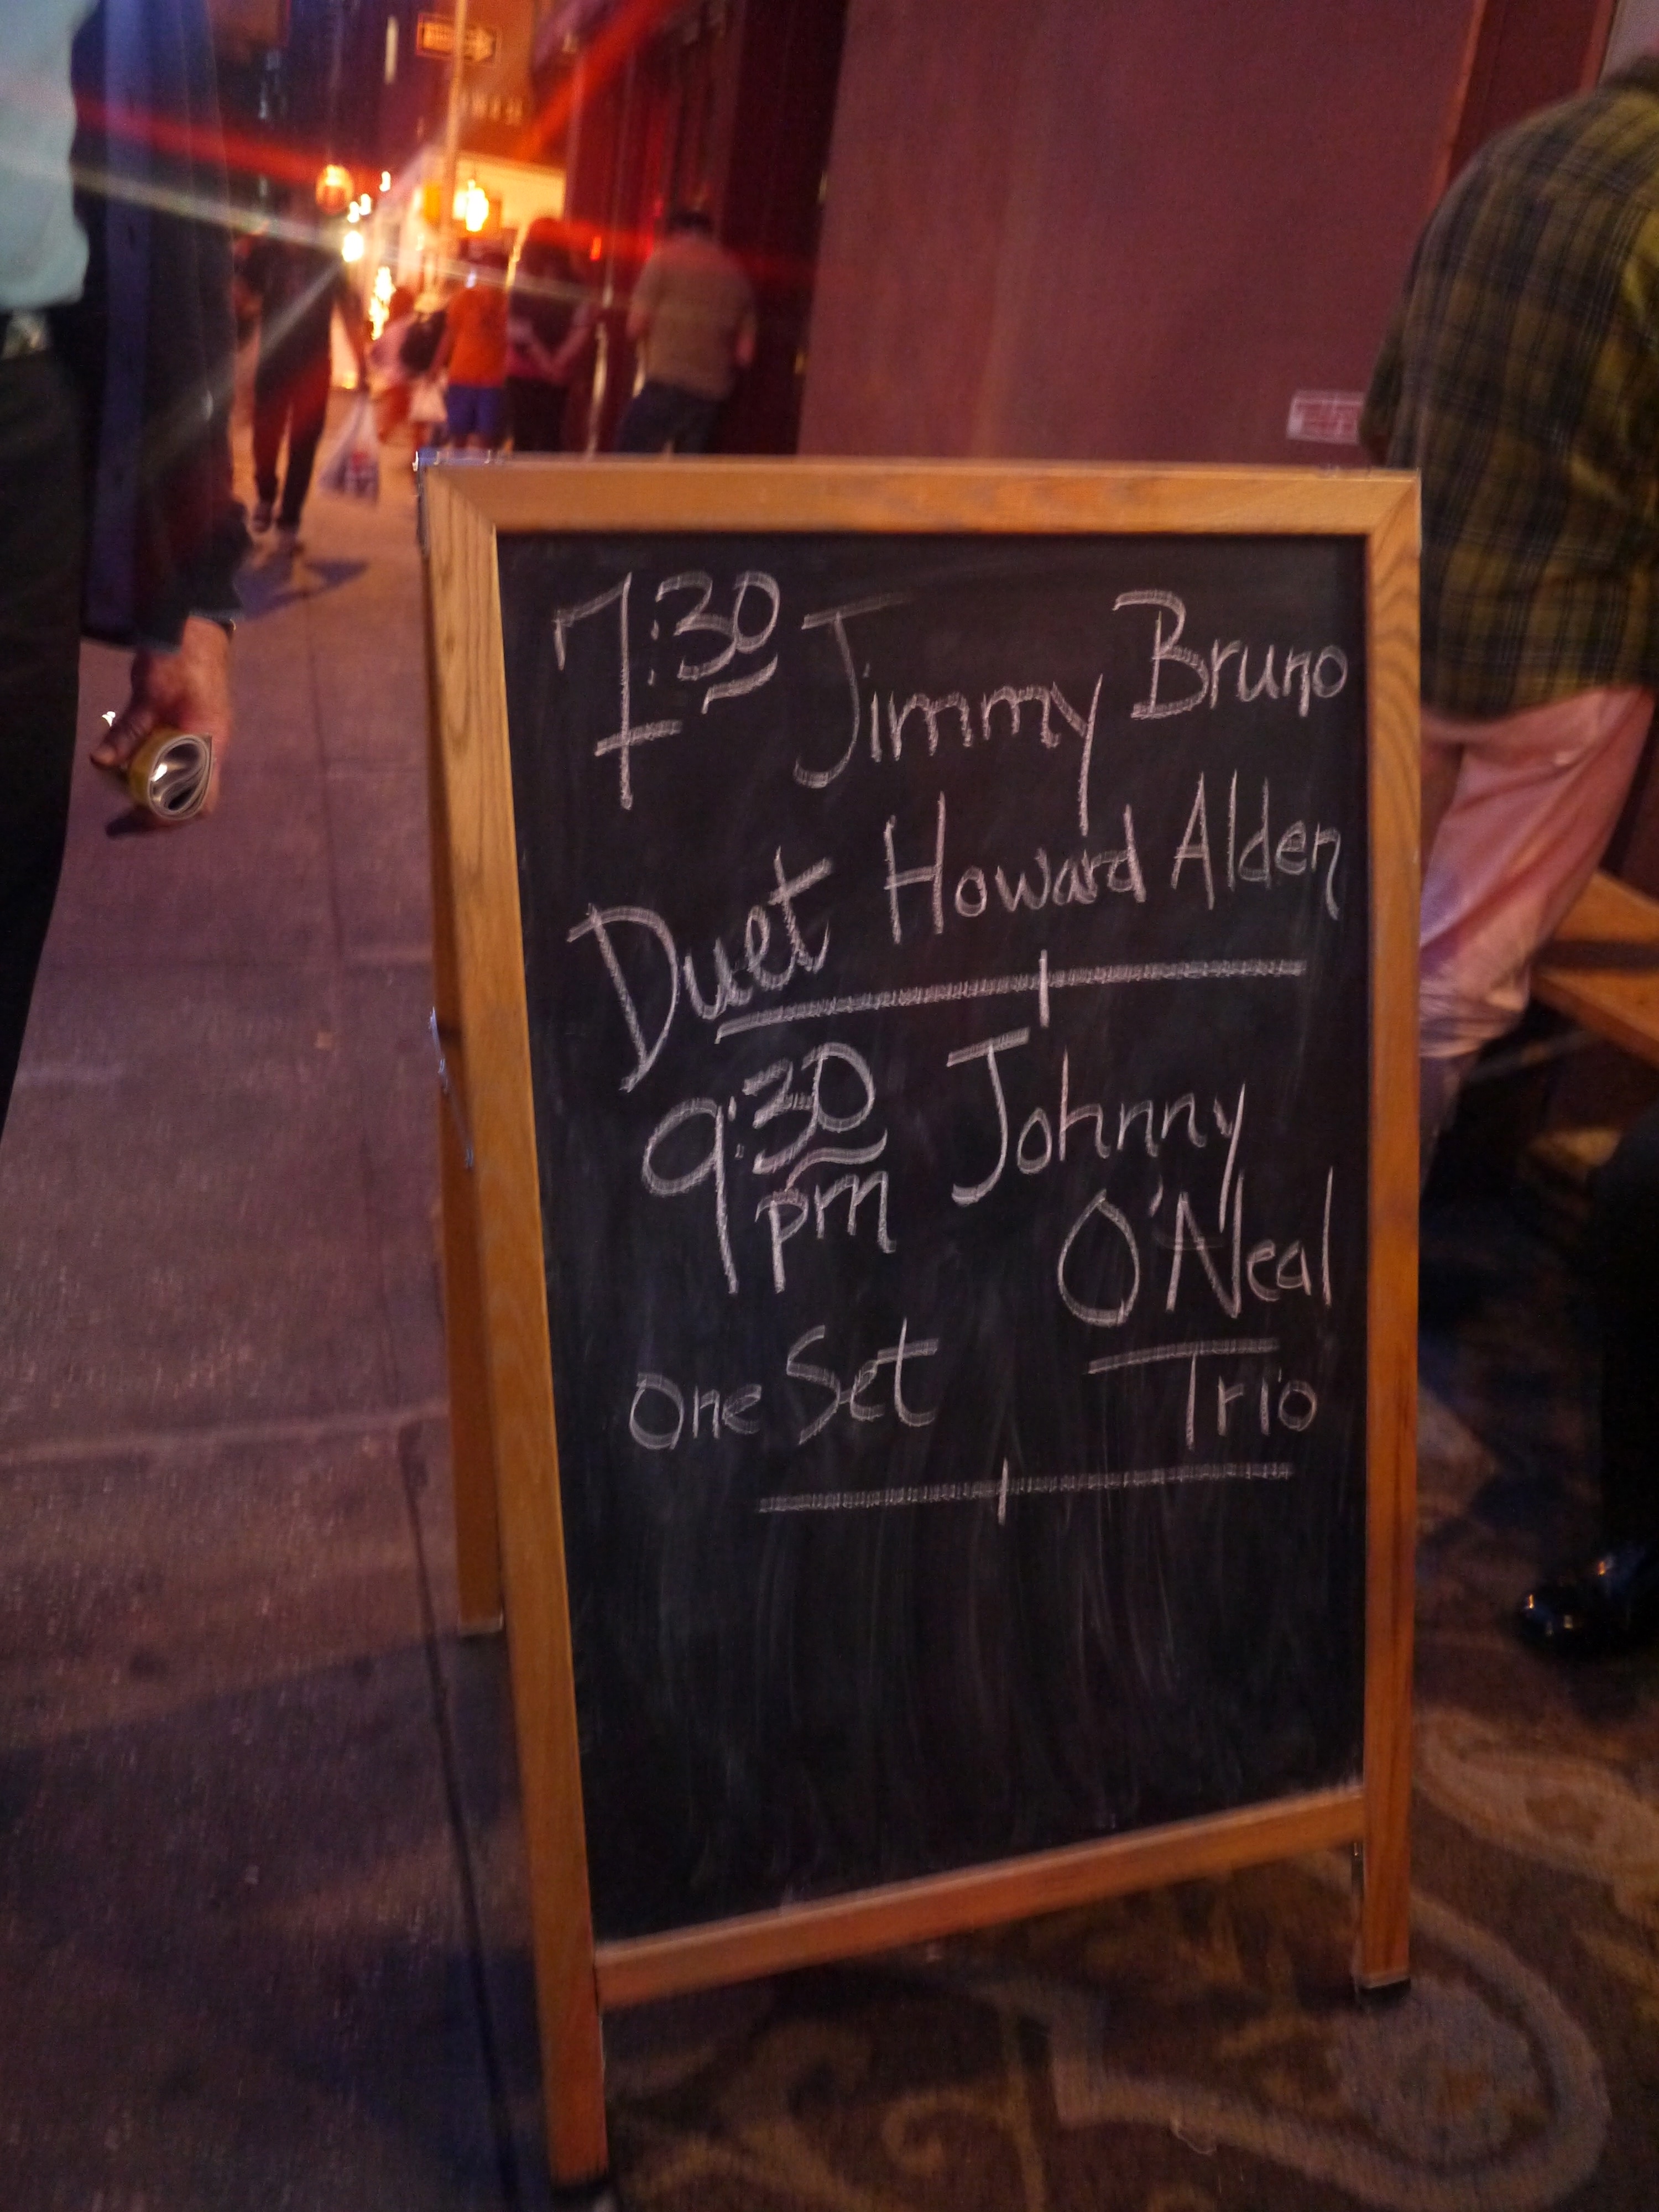 7:30 Jimmy Bruno
Duet Howard Alden
9:30 Johnny
pm O'Neal
One Set Trio